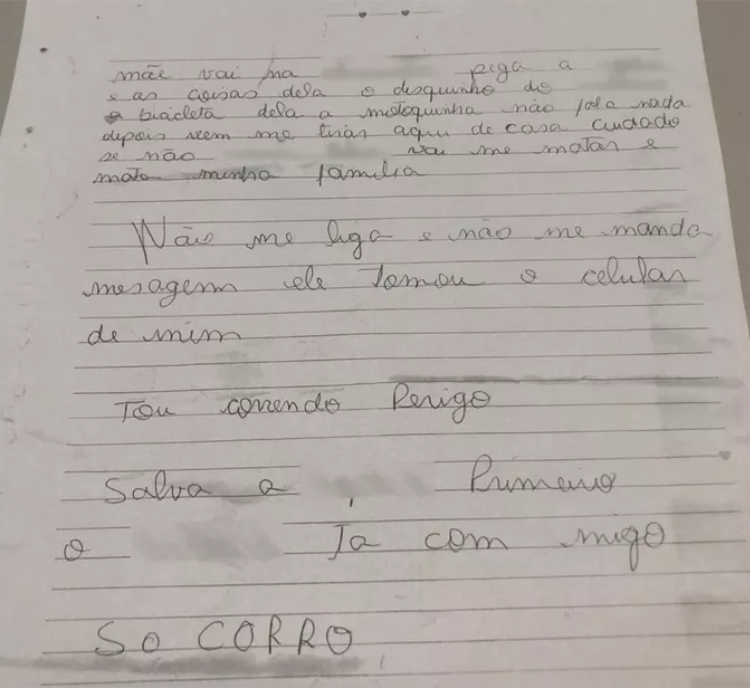 mãe vai na pega a
e as coisas dela o disquinho de
a bicicleta dela a motoquinha não fala nada
depois vem me tirar aqui de casa cuidado
se não vai me matar e
mata minha família
Não me liga e não me manda
mesagem ele tomou o celular
de mim
Tou correndo Perigo
Salva a , Primeiro
o Ta com migo
SO CORRO